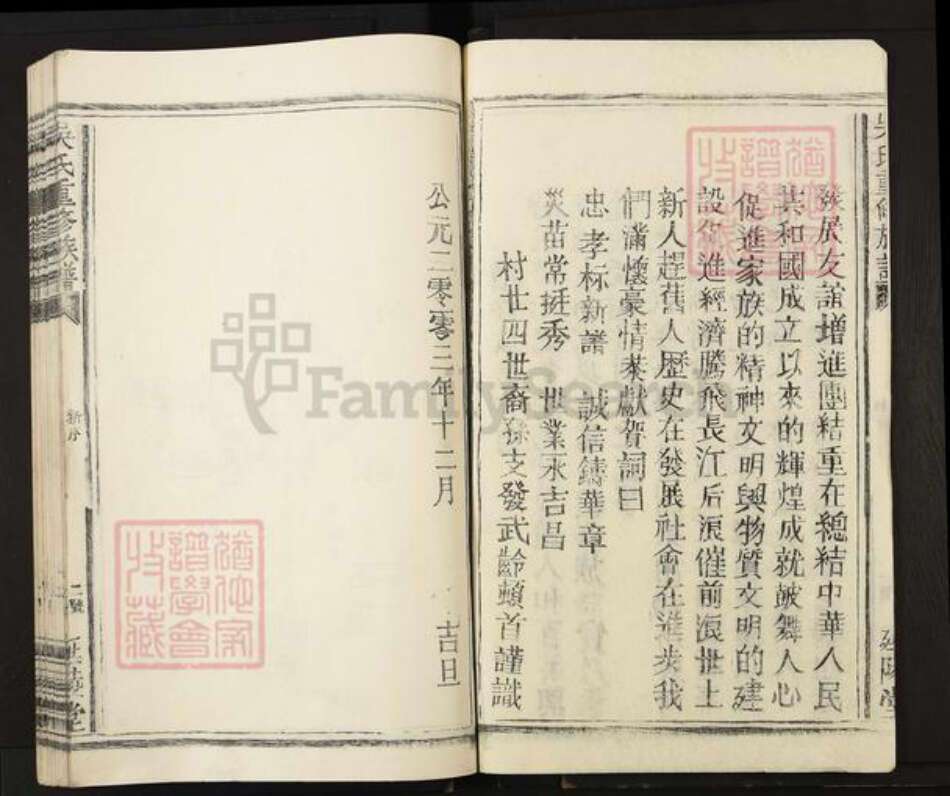 發展友誼增進團結重在總結中華人民
共和國成立以來的輝煌成就皷舞人心
促進家族的精神文明與物質文明的建
設促進經濟騰飛長江后浪催前浪世上
新人趕舊人歷史在發展社會在進步我
們滿懷豪情奉獻賀詞曰
忠孝标新譜 誠信鑄華章
災苗常挺秀 世業永吉昌
村廿四世裔孫支發武齡頓首謹識
公元二零零三年十二月
吉旦
吳氏重修族譜
新序
FamilySearch
猶他家
譜學會
收藏